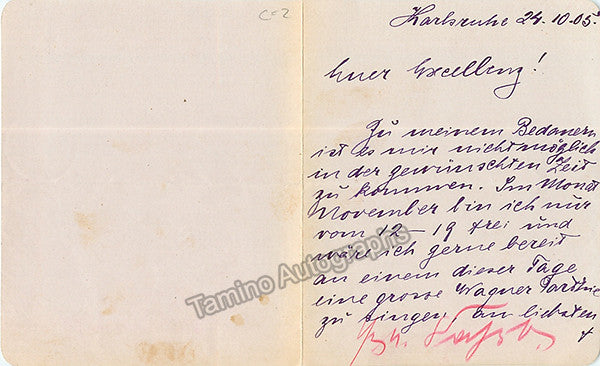 C=2
Karlsruhe 24.10.05.
Euer Excellenz!
Zu meinem Bedauern
ist es mir nicht möglich
in der gewünschten Zeit
zu kommen. Im Monat
November bin ich nur
vom 12–19 frei und
wäre ich gerne bereit
an einem dieser Tage
eine grosse Wagner Parthie
zu singen, am liebsten
Tamino Autographs